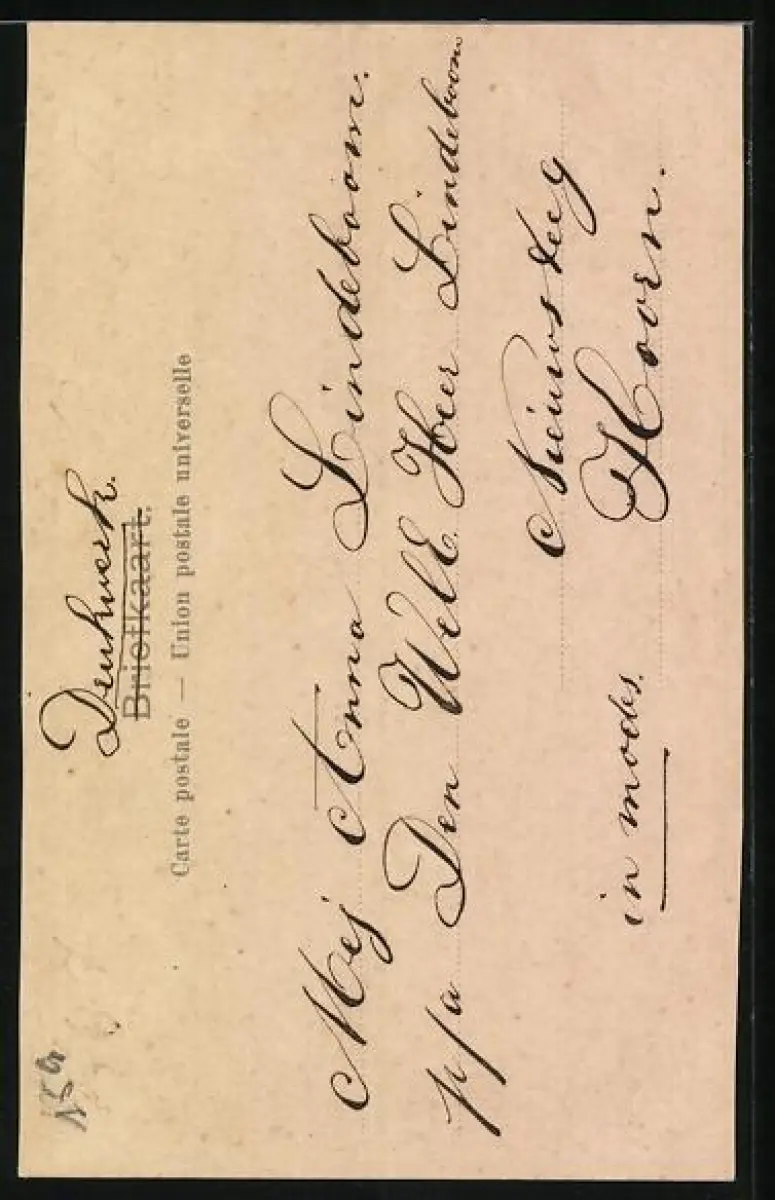 Drukwerk.
Briefkaart.
Carte postale — Union postale universelle
Mej Anna Lindeboom.
p/a Den WelE. Heer Lindeboom
Nieuwsteeg
Hoorn.
in modes.